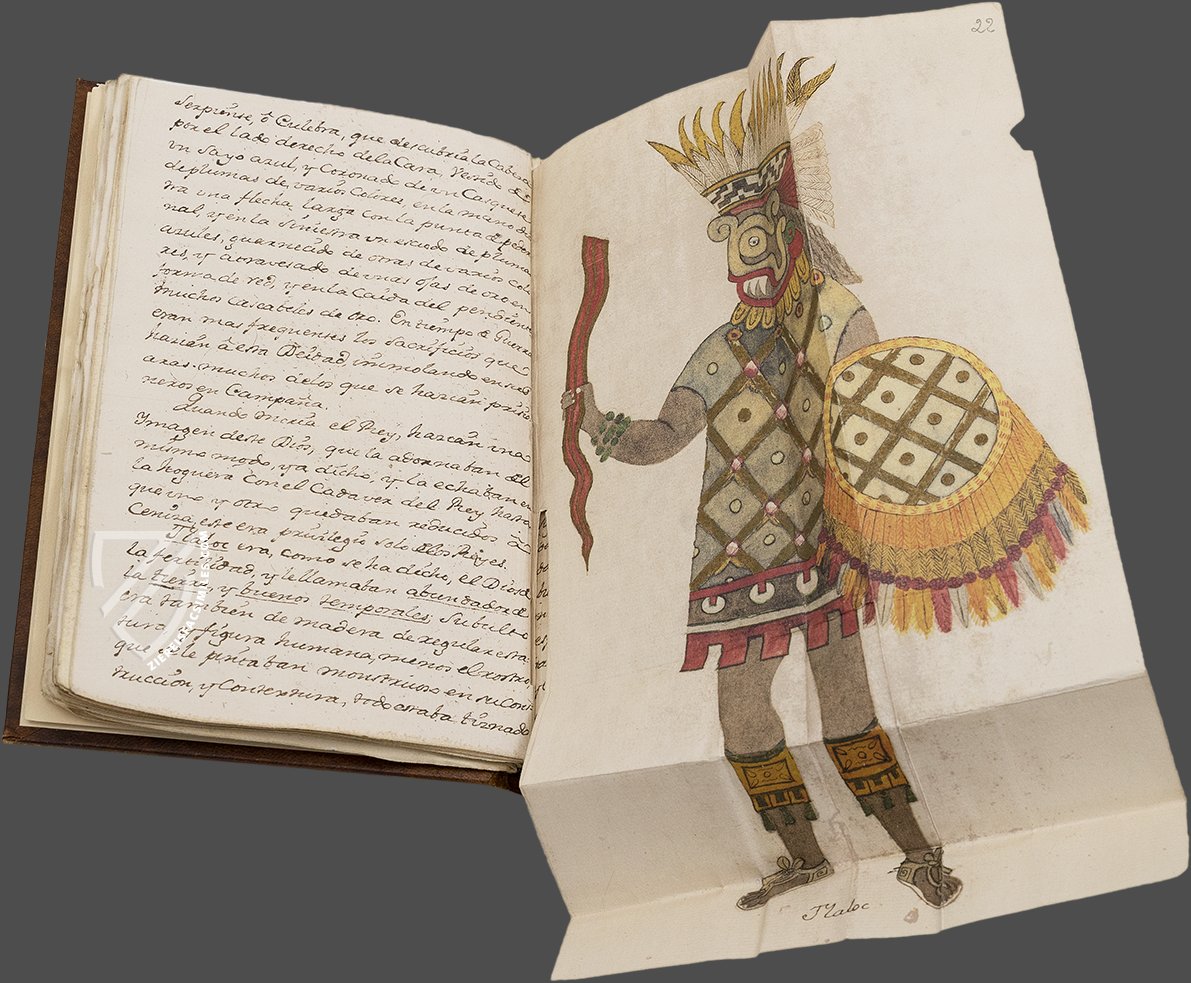 Serpiente, ô Culebra, que descubria la Cabeza
por el lado derecho dela Cara, Vestido de
vn Sayo azul, y Coronado de vn Casquete
de plumas de varios Colores, en la mano
na una flecha larga con la punta de peder
nal, y en la siniestra vn escudo de pluma
azules, guarnecido de otras de varios colo
res, y atravesado de unas ojas de oro en
forma de red, y en la Caida del pendien
muchos cascabeles de Oro. En tiempo de Guerra
eran mas frequentes los Sacrificios que
hacian â esta Deidad, immolando en sus
aras muchos de los que se hacian prisio
neros en Campaña.
Quando moria el Rey, hacian una
Imagen deste Dios, que la adornaban del
mismo modo, ya dicho, y la echaban en
la hoguera con el Cadaver del Rey, hasta
que uno y otro quedaban reducidos â
Ceniza, este era privilegio solo de los Reyes.
Tlaloc era, como se hâ dicho, el Dios de
la fertilidad, y le llamaban abundador de
la tierra, y buenos temporales; Su bulto
era tambien de madera de regular esta
tura y figura humana, menos el rostro
que le pintaban monstruoso en su Cons
truccion, y Contextura, todo estaba tiznado
22
Tlaloc